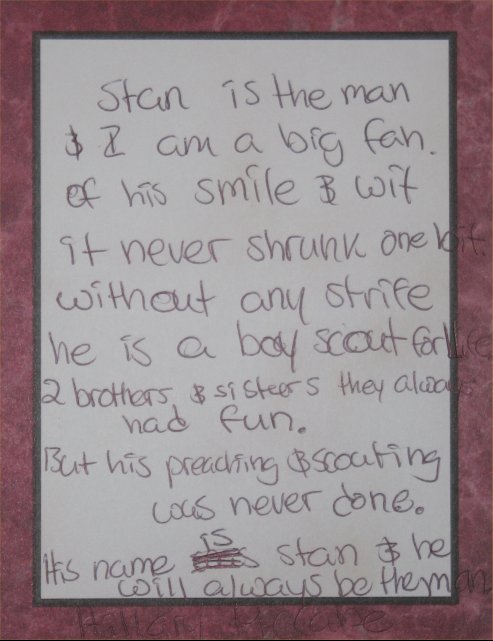 Stan is the man
& I am a big fan.
of his smile & wit
it never shrunk one bit.
without any strife
he is a boy scout for life
2 brothers & sisteers they always
had fun.
But his preaching & scouting
was never done.
His name is stan & he
will always be the man
Hillary